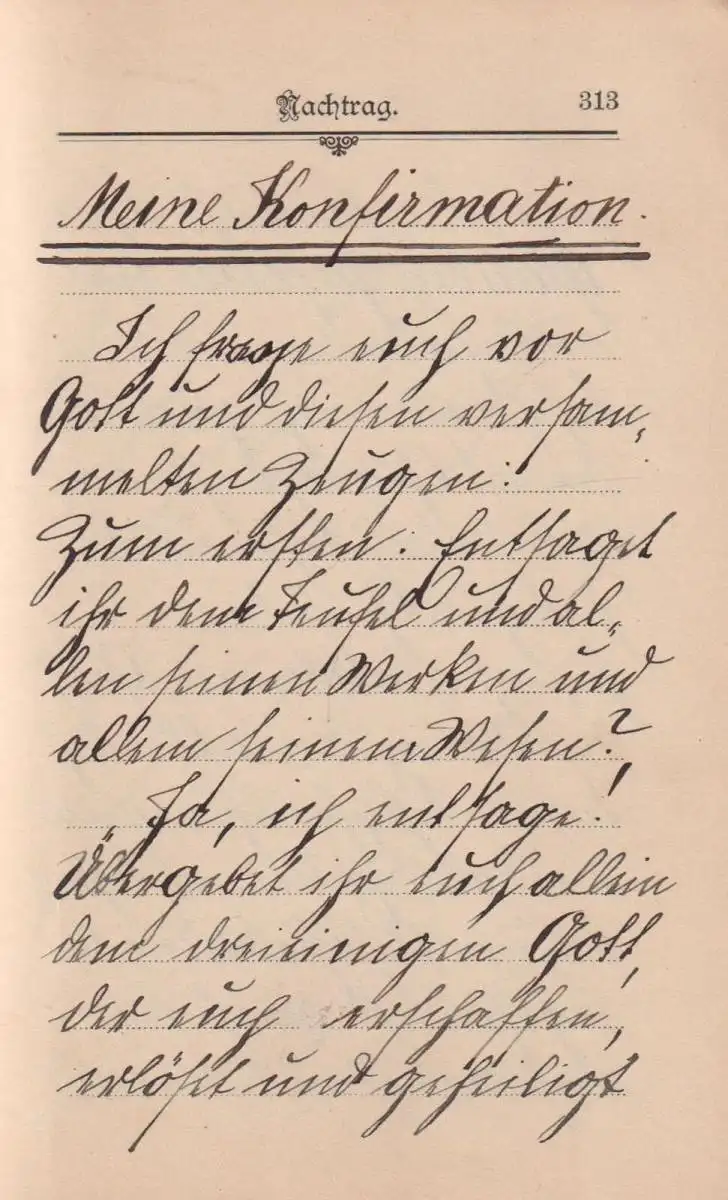 Nachtrag. 313
Meine Konfirmation.
Ich frage euch vor
Gott und diesen versam-
melten Zeugen:
Zum ersten: Entsaget
ihr dem Teufel und al-
len seinen Werken und
allem seinem Wesen?
Ja, ich entsage!
Übergebet ihr euch allein
dem dreieinigen Gott,
der euch erschaffen,
erlöset und geheiligt